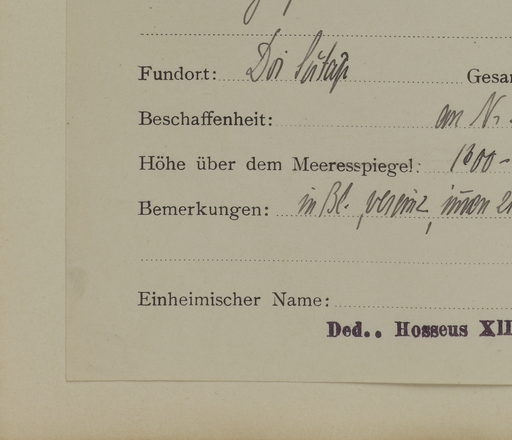 Fundort: Doi Sutap Gesam
Beschaffenheit: an N.
Höhe über dem Meeresspiegel: 1600-
Bemerkungen: in Bl.,
Einheimischer Name:
Ded.. Hosseus XII